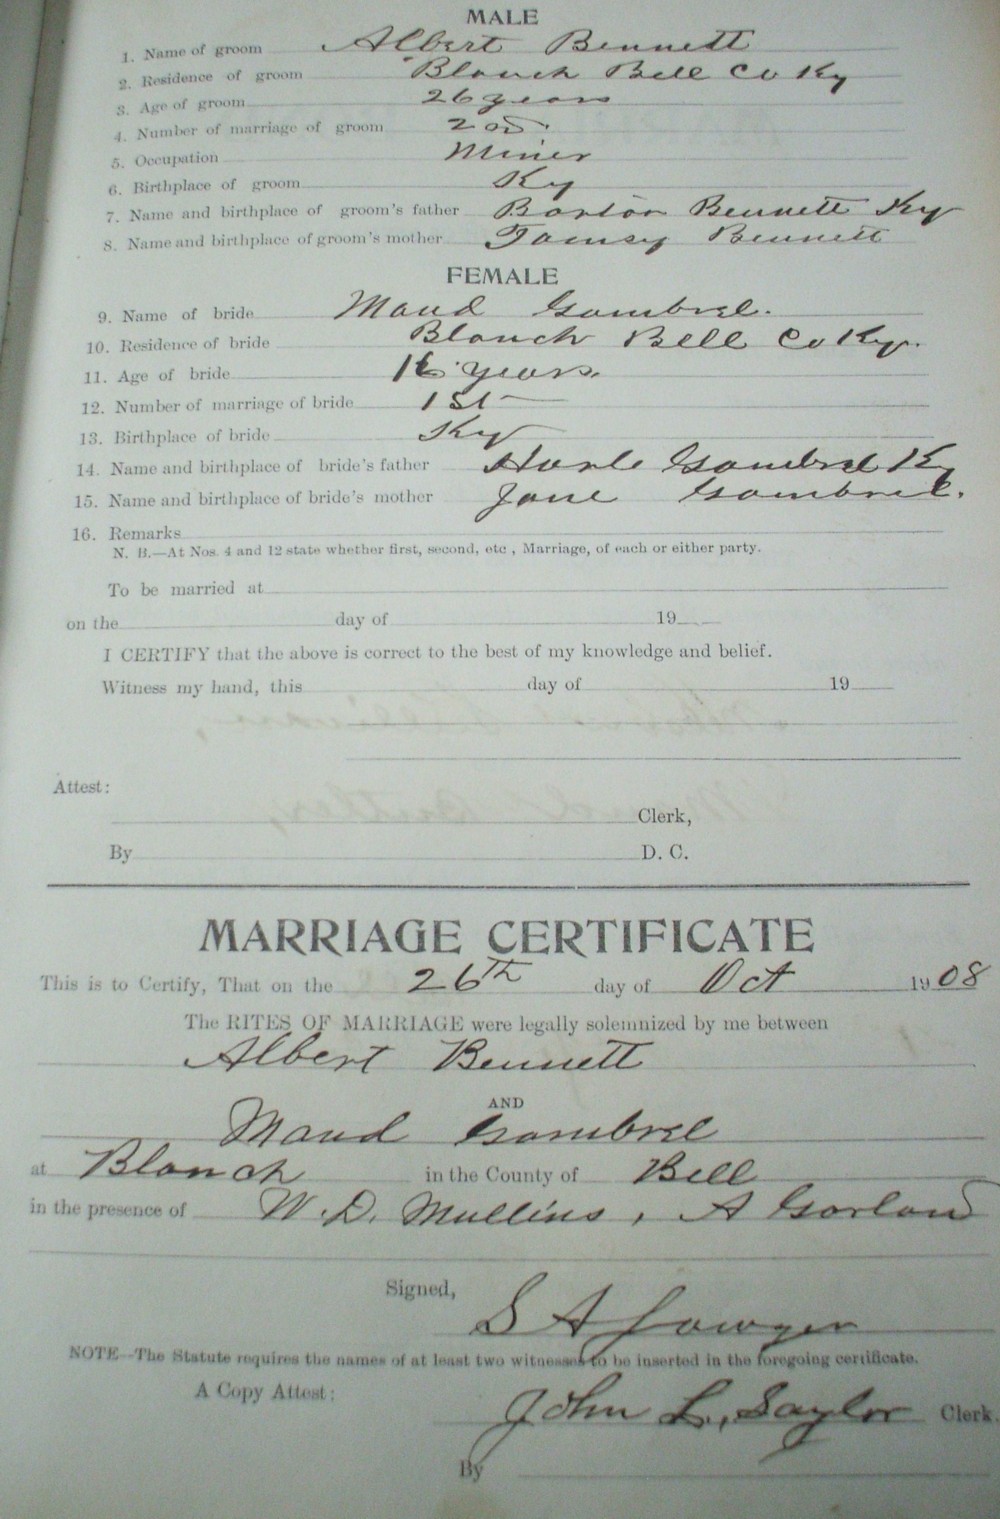 MALE
1. Name of groom Albert Bennett
2. Residence of groom Blanch Bell Co Ky
3. Age of groom 26 years
4. Number of marriage of groom 2nd.
5. Occupation Miner
6. Birthplace of groom Ky
7. Name and birthplace of groom's father Barton Bennett Ky
8. Name and birthplace of groom's mother Tamsey Bennett
FEMALE
9. Name of bride Maud Gambrel.
10. Residence of bride Blanch Bell Co Ky.
11. Age of bride 16 years.
12. Number of marriage of bride 1st
13. Birthplace of bride Ky
14. Name and birthplace of bride's father Gambrel Ky
15. Name and birthplace of bride's mother Jane Gambrel.
16. Remarks
N. B.—At Nos. 4 and 12 state whether first, second, etc , Marriage, of each or either party.
To be married at
on the day of 19
I CERTIFY that the above is correct to the best of my knowledge and belief.
Witness my hand, this day of 19
Attest:
Clerk,
By D. C.
MARRIAGE CERTIFICATE
This is to Certify, That on the 26th day of Oct 1908
The RITES OF MARRIAGE were legally solemnized by me between
Albert Bennett
AND
Maud Gambrel
at Blanch in the County of Bell
in the presence of W. D. Mullins, A Garland
Signed,
S A
NOTE—The Statute requires the names of at least two witnesses to be inserted in the foregoing certificate.
A Copy Attest:
John L, Saylor Clerk.
By